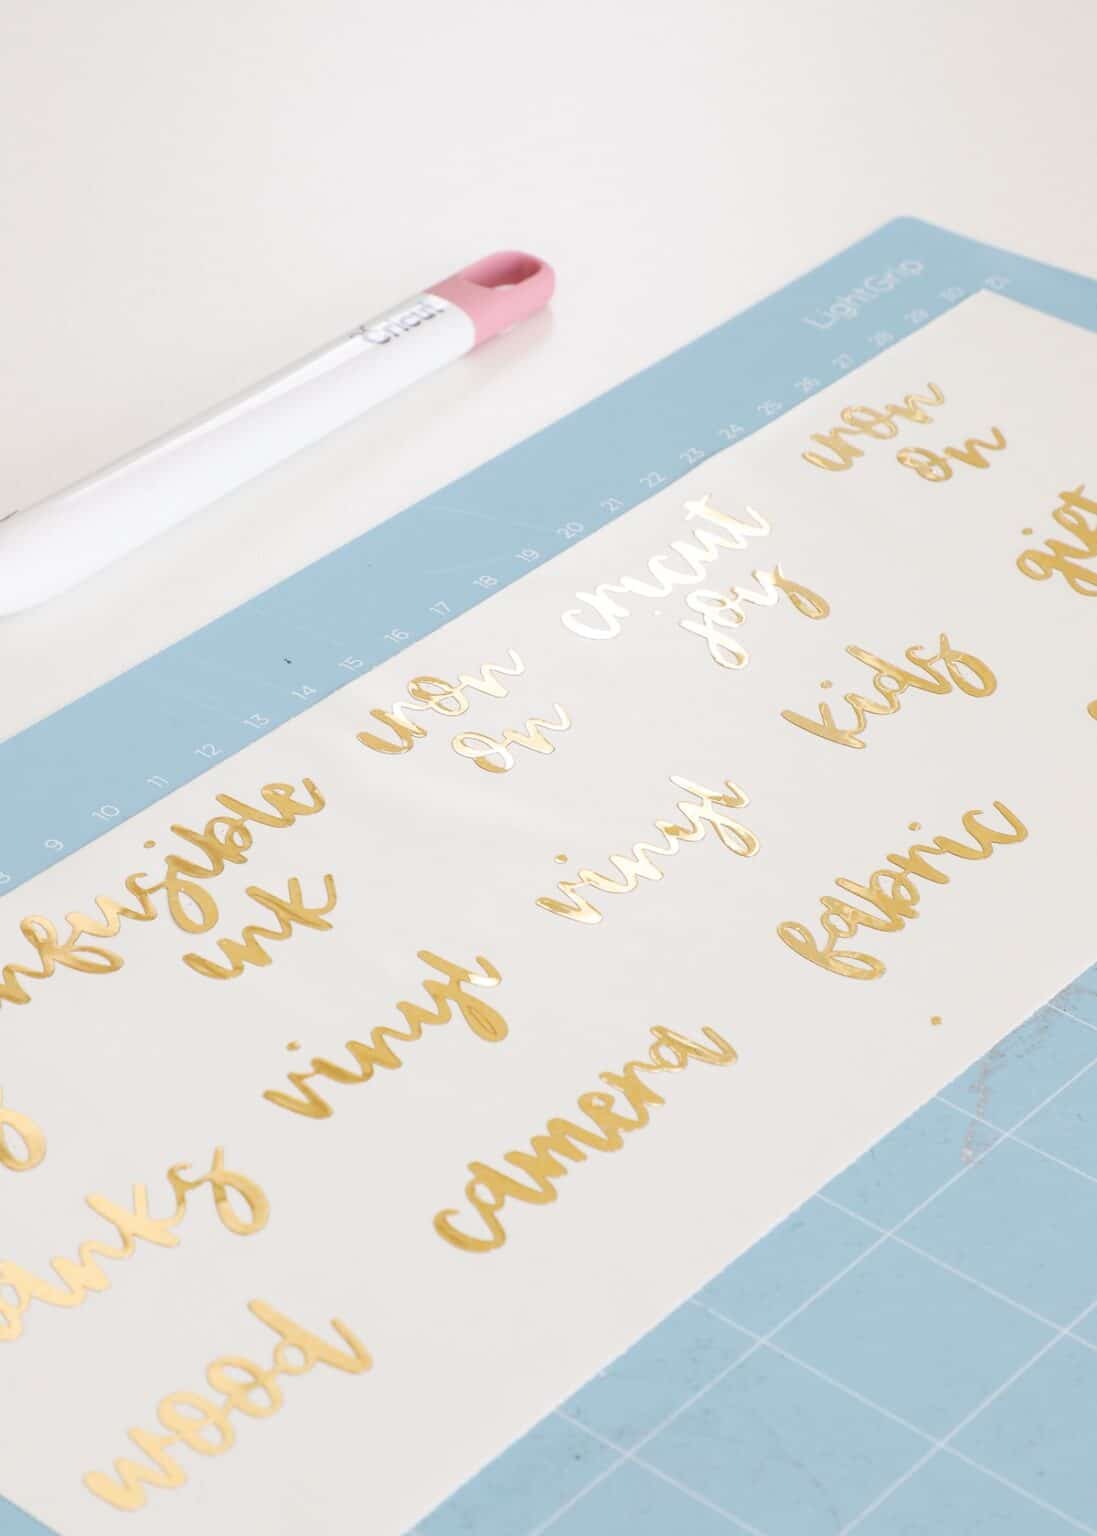 Cricut
LightGrip
9 10 11 12 13 14 15 16 17 18 19 20 21 22 23 24 25 26 27 28 29 30 31
iron
on
gift
cricut
joy
kids
iron
on
vinyl
fabric
nfusible
ink
vinyl
camera
anks
wood